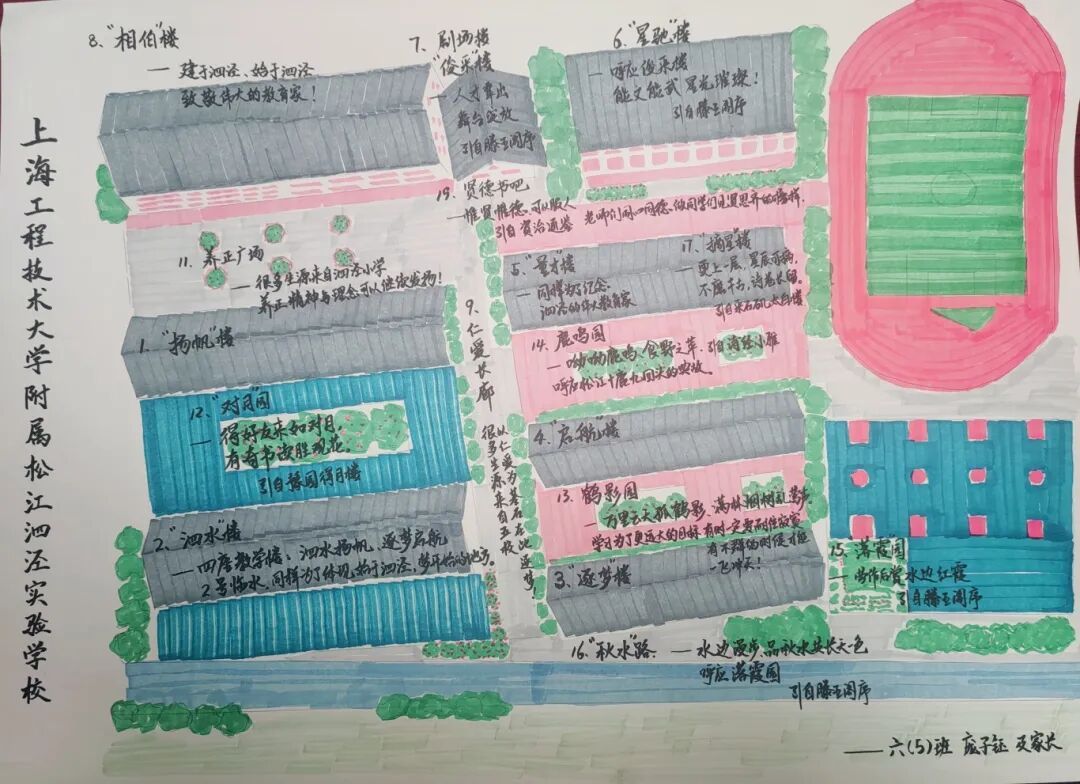 上海工程技术大学附属松江泗泾实验学校
8、"相伯"楼
— 建于泗泾、始于泗泾
致敬伟大的教育家！
7、剧场楼
"俊采"楼
— 人才辈出
舞台绽放
引自滕王阁序
6、"星驰"楼
— 呼应俊采楼
能文能武 星光璀璨！
引自滕王阁序
19、贤德书吧
— 惟贤惟德，可以服人
引自资治通鉴
11、养正广场
— 很多生源来自泗泾小学
养正精神与理念可以继续发扬！
5、"量才"楼
— 同样为了纪念
泗泾的伟大教育家
17、"摘星"楼
— 更上一层，星辰可摘，
引自采石矶太白楼
1、"扬帆"楼
9、仁爱长廊
以仁爱为基石
很多生源来自五校
14、鹿鸣园
— 呦呦鹿鸣，食野之苹，引自诗经小雅
呼应松江十鹿九回头的典故。
12、"对月"园
— 得好友来如对月，
有奇书读胜观花。
引自豫园得月楼
4、"启航"楼
13、鹤影园
— 万里云天孤鹤影，满林烟树乱莺声
学习为了更远大的目标，有时一定要耐住寂寞
一飞冲天！
2、"泗水"楼
— 四座教学楼：泗水扬帆，逐梦启航
2号临水，同样为了体现，始于泗泾，梦开始的地方。
3、"逐梦"楼
15、落霞园
— 劳作后赏水边红霞
引自滕王阁序
16、"秋水"路 — 水边漫步，品秋水共长天一色
呼应落霞园
引自滕王阁序
—— 六(5)班 庞子钰 及家长